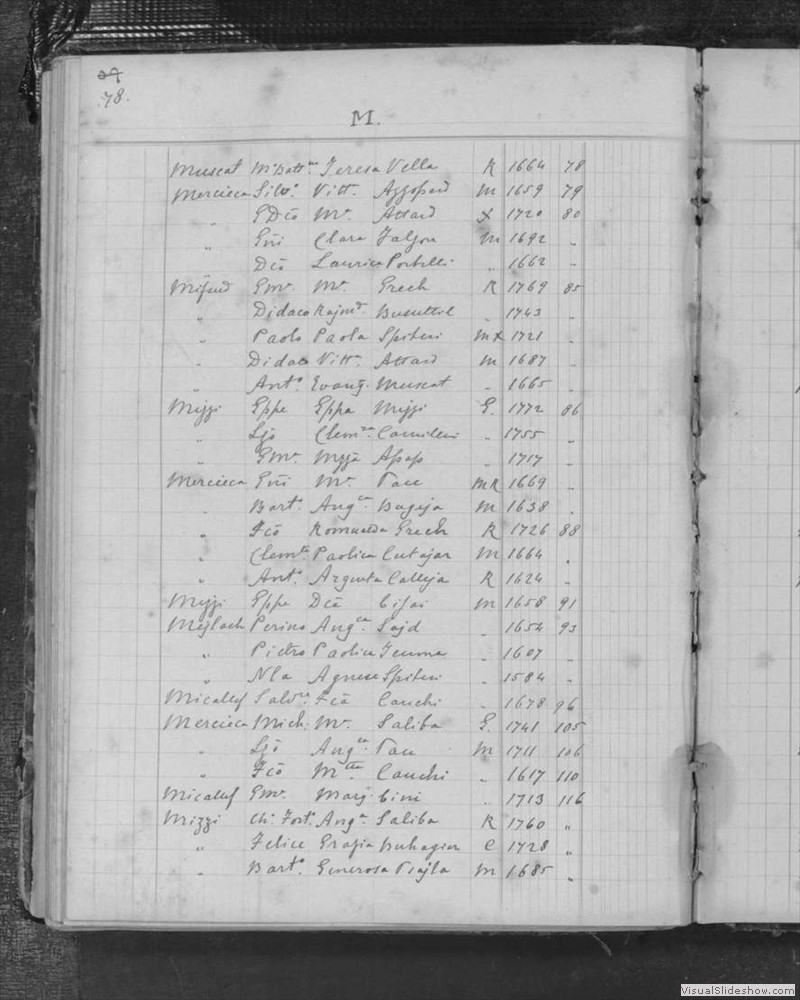 78.
M.
Muscat Teresa Vella R 1664 78
Mercieca Silv. Vitt. Azzopard M 1659 79
" Mᵃ. Attard X 1720 80
" Clara Falzon M 1692 "
Dcō Laurica Portelli " 1662 "
Mifsud Emᵉ. Mᵃ. Grech R 1769 85
" Didaco Rajmᵈ. Busuttil " 1743 "
" Paolo Paola Spiteri M X 1721 "
" Didaco Vittᵃ. Attard M 1687 "
" Antᵒ. Evang. Muscat " 1665 "
Mizzi Gppe Gppa Mizzi G. 1772 86
" Lzō Clemᵗᵃ. Camilleri " 1755 "
" Emᵉ. Apap " 1717 "
Mercieca Mᵃ. Tau MR 1669 "
" Bartᵒ. Angᶜᵃ Bugeja M 1638 "
" Fcō Romualda Grech R 1726 88
" Clemᵗᵉ. Paolica Cutajar M 1664 "
" Antᵒ. Argenta Calleja R 1624 "
Mizzi Gppe Dcā M 1658 91
Mejlach Perino Angᶜᵃ. Sajd " 1654 93
" Pietro Paolica " 1607 "
" Nla Agnese Spiteri " 1584 "
Micallef Salvʳᵉ. Fcā Cauchi " 1678 96
Mercieca Mich. Mᵃ. Saliba G. 1741 105
" Lzō Angᶜᵃ. Tau M 1711 106
" Fcō Mᵗᵗᵃ Cauchi " 1617 110
Micallef Emᵉ. Marg. Cini " 1713 116
Mizzi Angᵃ. Saliba R 1760 "
" Felice Grazia Buhagiar C 1728 "
" Bartᵒ. Generosa M 1685 "
VisualSlideshow.com